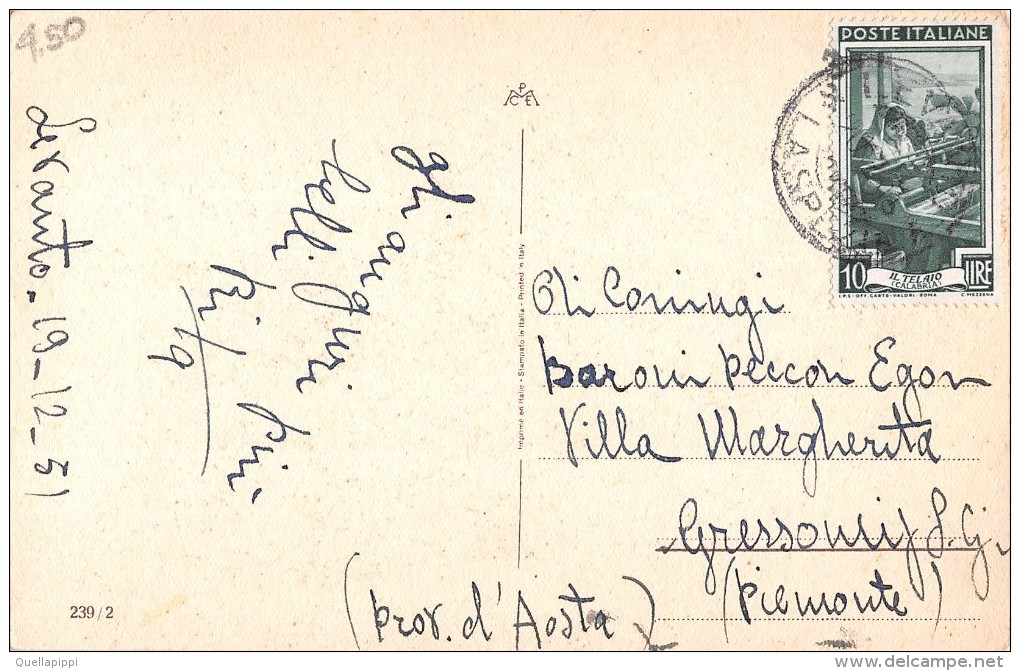 4.50
Levanto. 19-12-51
gli auguri più
belli
Rita
239/2
PCE
Imprimé en Italie - Stampato in Italia - Printed in Italy
POSTE ITALIANE
LA SPEZIA
10 LIRE
IL TELAIO
(CALABRIA)
I.P.S.-OFF. CARTE-VALORI-ROMA C. MEZZANA
Ai Coniugi
Baroni Peccoz Egon
Villa Margherita
Gressoney S. G.
(Piemonte)
(prov. d'Aosta)
© Quellapippi
delcampe.net